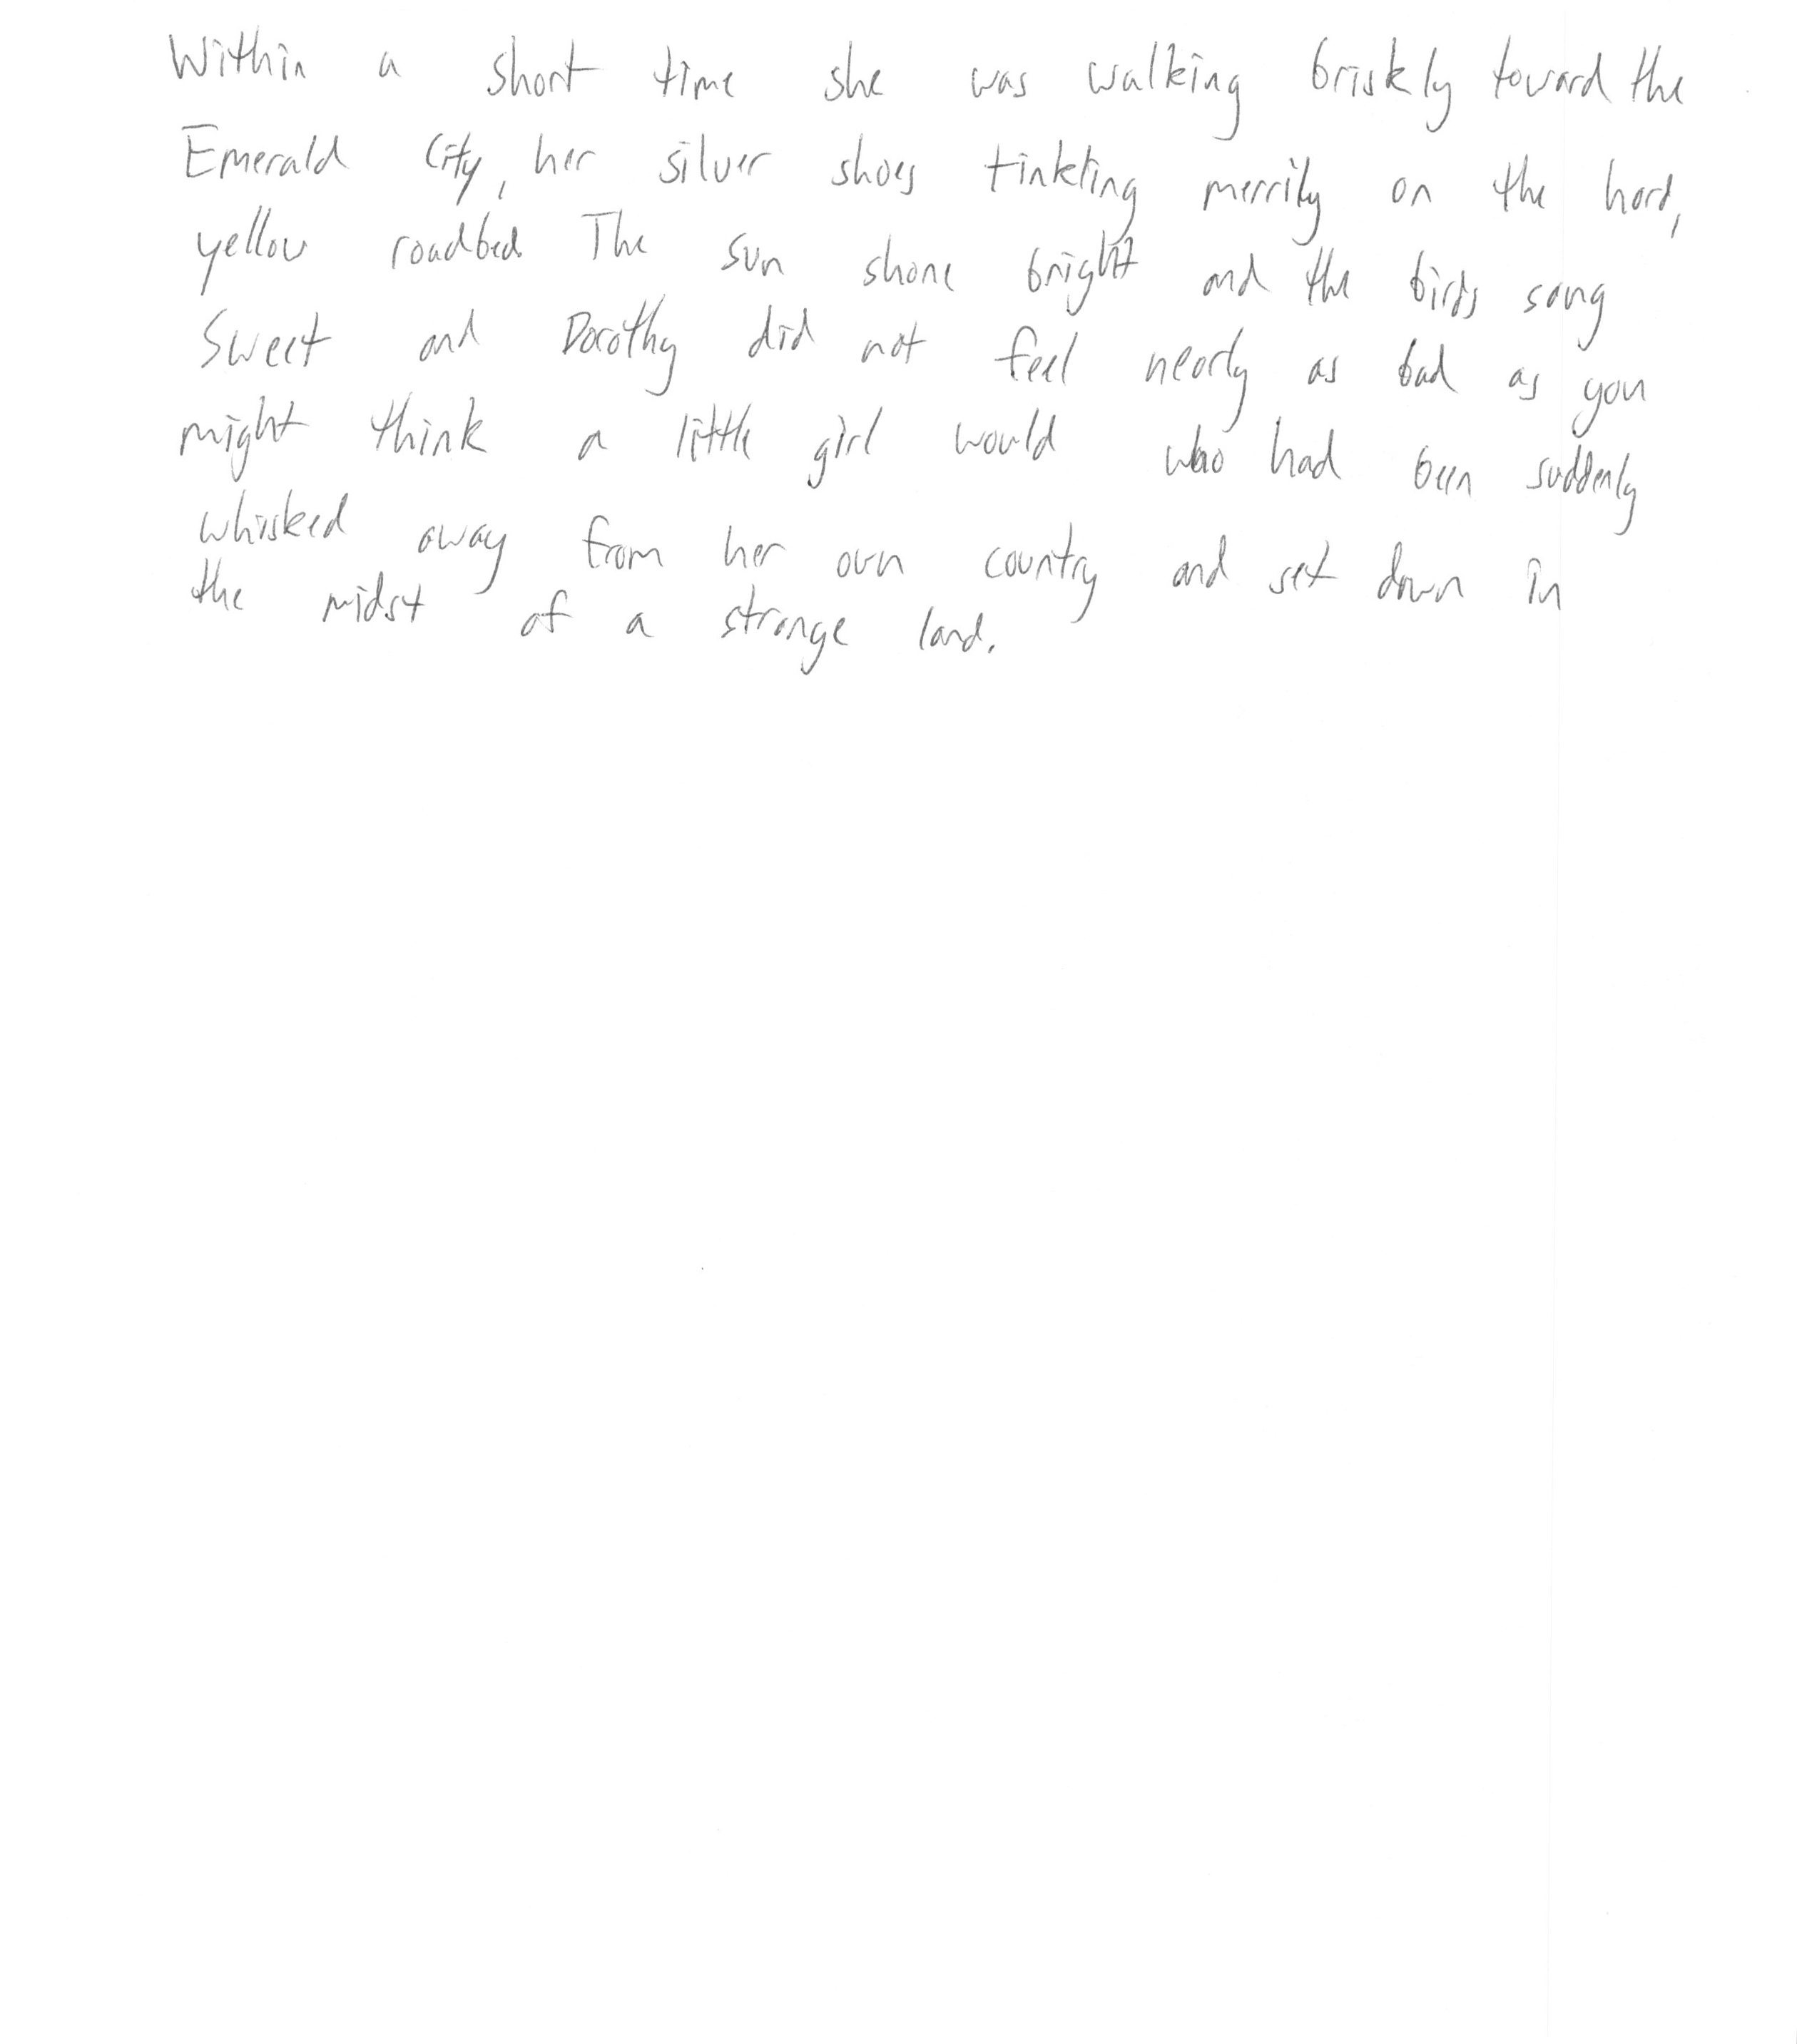 Within a short time she was walking briskly toward the
Emerald City, her silver shoes tinkling merrily on the hard,
yellow roadbed. The sun shone bright and the birds sang
Sweet and Dorothy did not feel nearly as bad as you
might think a little girl would who had been suddenly
whisked away from her own country and set down in
the midst of a strange land.